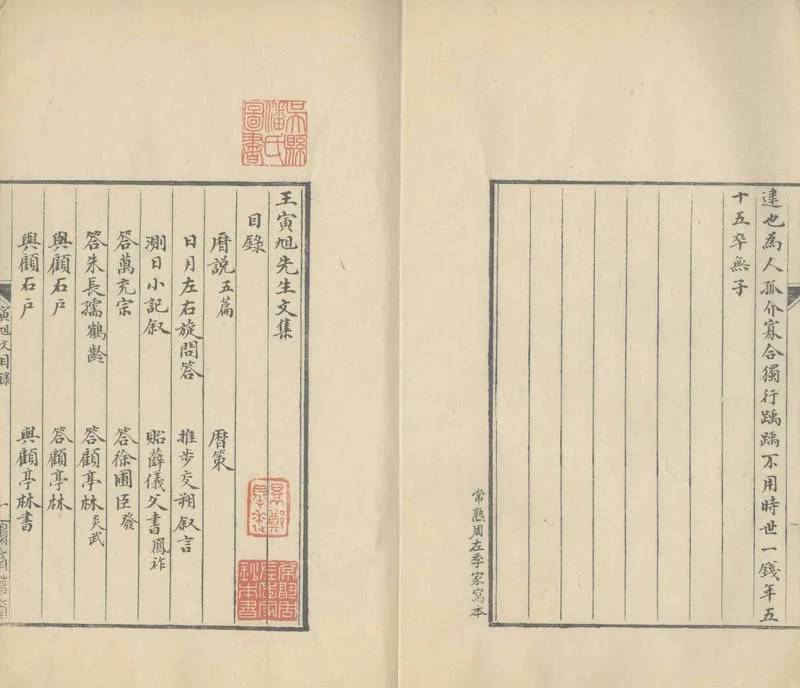 達也為人孤介寡合獨行踽踽不用時世一錢年五
十五卒無子
常熟周左季家寫本
吳縣潘氏圖書
王寅旭先生文集
目錄
曆說五篇 曆策
日月左右旋問答 推步交朔叙言
測日小記叙 貽薛儀父書鳳祚
答萬充宗 答徐圃臣發
答朱長孺鶴齡 答顧亭林炎武
與顧石戶 答顧亭林
與顧石戶 與顧亭林書
寅旭文目錄
一